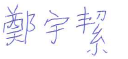 鄭宇絜